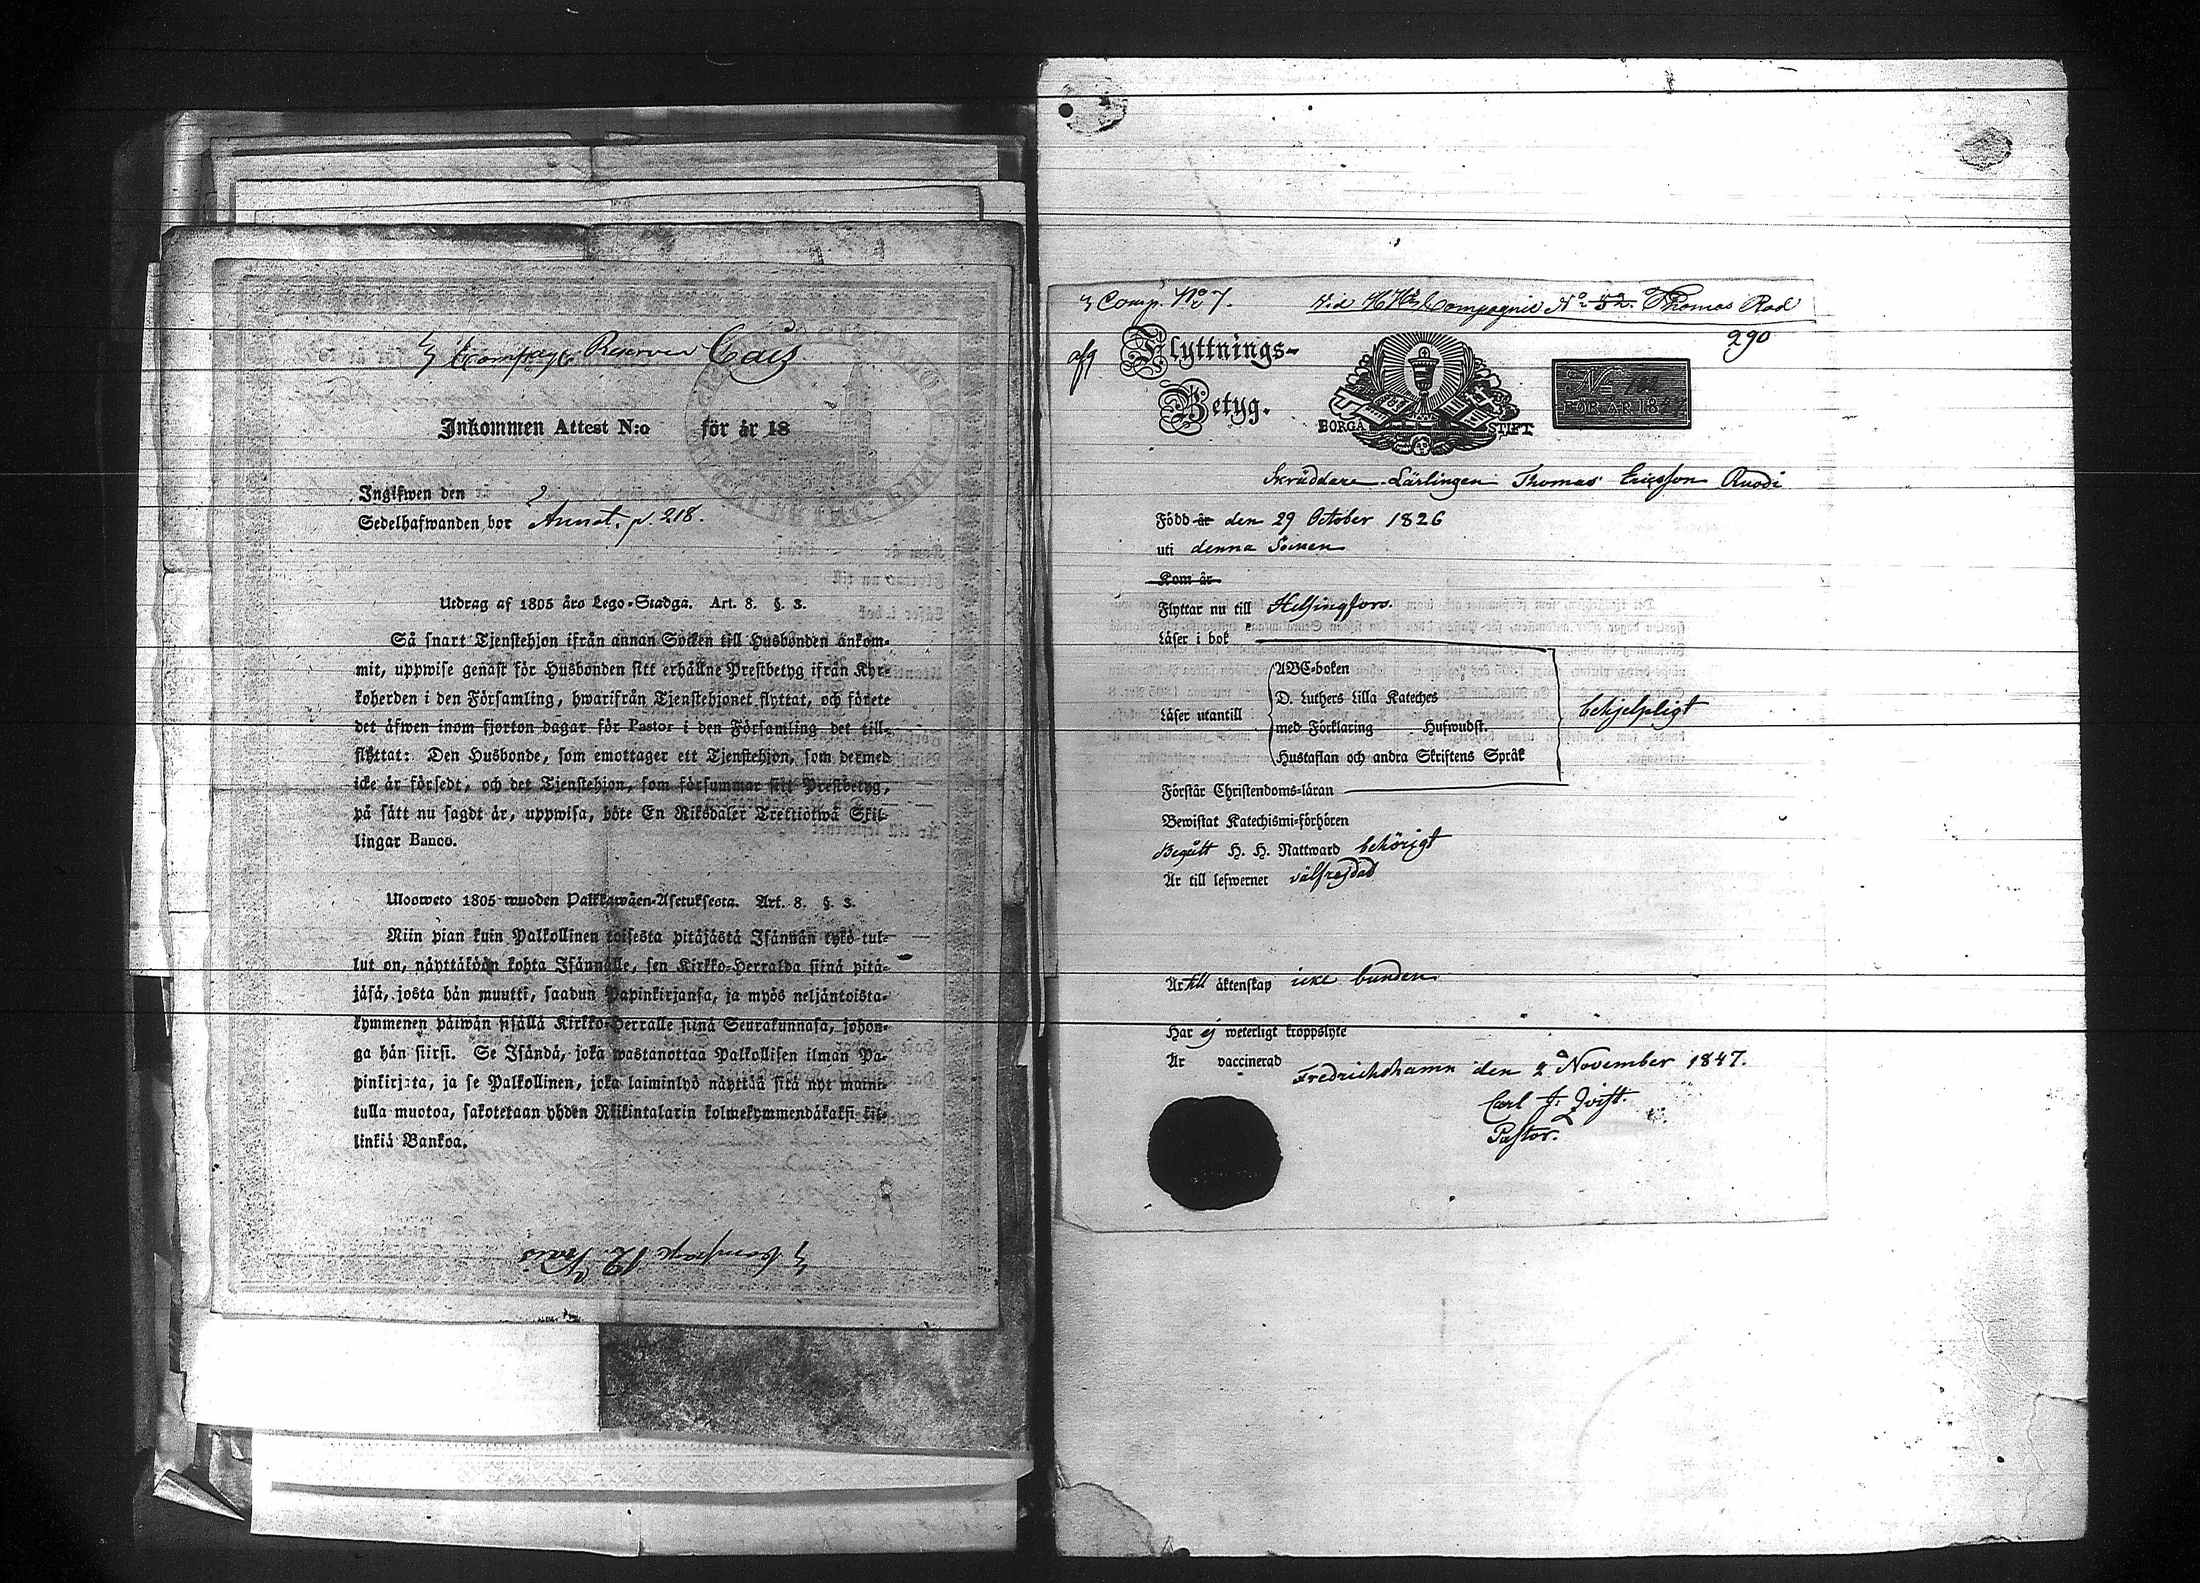 3 Compag. Reserven Cais.
Inkommen Attest N:o för år 18
Inglfwen den
Sedelhafwanden bor Annot. p. 218.
Utdrag af 1805 års Lego-Stadga. Art. 8. §. 3.
Så snart Tjenstehjon ifrån annan Socken till Husbonden ankom-
mit, uppwise genast för Husbonden sitt erhållne Prestbetyg ifrån Kyr-
koherden i den Församling, hwarifrån Tjenstehjonet flyttat, och förete
det äfwen inom fjorton dagar för Pastor i den Församling det till-
flyttat: Den Husbonde, som emottager ett Tjenstehjon, som dermed
icke är försedt, och det Tjenstehjon, som försummar sitt Prestbetyg,
på sätt nu sagdt är, uppwisa, böte En Riksdaler Trettiotwå Skil-
lingar Banco.
Ulosweto 1805 wuoden Palkkawäen-Asetuksesta. Art. 8. §. 3.
Niin pian kuin Palkollinen toisesta pitäjästä Isännän tykö tul-
lut on, näyttäköön kohta Isännälle, sen Kirkko-Herralda siinä pitä-
jäsä, josta hän muutti, saadun Papinkirjansa, ja myös neljäntoista-
kymmenen päiwän sisällä Kirkko-Herralle siinä Seurakunnasa, johon-
ga hän siirsi. Se Isändä, joka wastanottaa Palkollisen ilman Pa-
pinkirjata, ja se Palkollinen, joka laiminlyö näyttää sitä nyt maini-
tulla muotoa, sakotetaan yhden Riikintalarin kolmekymmendäkaksi kil-
linkiä Bankoa.
3 Compage R. Kais
3 Comp. No 7. Compagnie No 52. Thomas Rod
290
afg Flyttnings-
Betyg.
BORGÅ STIFT
No
FÖR ÅR 18
Skräddare-Lärlingen Thomas Ericsson Ruodi
Född år den 29 October 1826
uti denna Socken
Kom år
Flyttar nu till Helsingfors.
Läser i bok
ABC-boken
D. Luthers Lilla Kateches
Läser utantill med Förklaring Hufwudst. behjelpligt
Hustaflan och andra Skriftens Språk
Förstår Christendoms-läran
Bewistat Katechismi-förhören
Begått H. H. Nattward behörigt
Är till lefwernet välfrejdad
Är till äktenskap icke bunden
Har ej weterligt kroppslyte
Är vaccinerad
Fredrichshamn den 2 November 1847.
Carl J. Qvist.
Pastor.